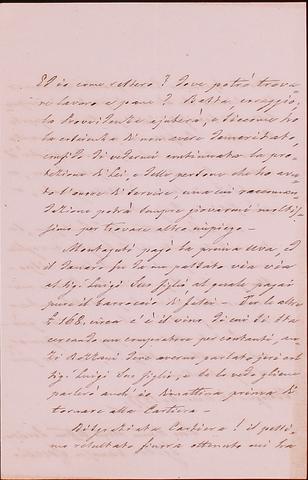 Ed io come resterò? Dove potrò trova-
re lavoro e pane? Basta, coraggio,
la Provvidenza ajuterà, e siccome ho
la coscienza di non avere demeritato,
confido di vedermi continuata la pro-
tezione di Lei, e delle persone che ho avu-
to l'onore di servire, una cui raccoman-
dazione potrà sempre giovarmi moltis-
simo per trovare altro impiego. -
Montaguti pagò la prima uva, ed
il denaro fu da me passato via via
al Sig. Luigi Suo figlio al quale pagai
pure il barroccio di fatti - Per le altre
£ 168, circa c'è il vino di cui si sta
cercando un compratore per contanti, an-
zi Bozzani deve averne parlato jeri col
Sig. Luigi Suo figlio, e se lo vedo gliene
parlerò anch'io stamattina prima di
tornare alla Cartiera -
Disgraziata Cartiera! il pessi-
mo resultato finora ottenuto mi ha